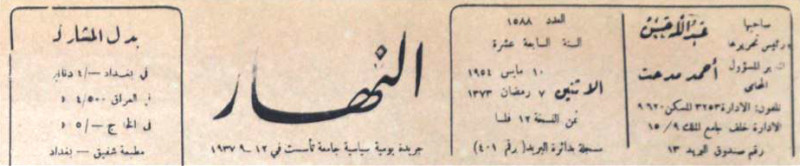 صاحبها
ورئيس تحريرها
المدير المسؤول
أحمد مدحت
المحامي
تلفون: الادارة ٣٢٥٣ المسكن ٩٦٢٠
الادارة خلف جامع الملك ١٥/٩
رقم صندوق البريد ١٣
العدد ١٥٨٨
السنة السابعة عشرة
الاثنين
١٠ مايس ١٩٥٤
٧ رمضان ١٣٧٣
ثمن النسخة ١٢ فلسا
مسجلة بدائرة البريد (رقم ٤٠١)
النهار
جريدة يومية سياسية جامعة تأسست في ١٢-٩-١٩٣٧
بدل المشاركة
في بغداد -/٤ دنانير
في العراق ٤/٥٠٠ »
في الخارج -/٥ »
مطبعة شفيق - بغداد